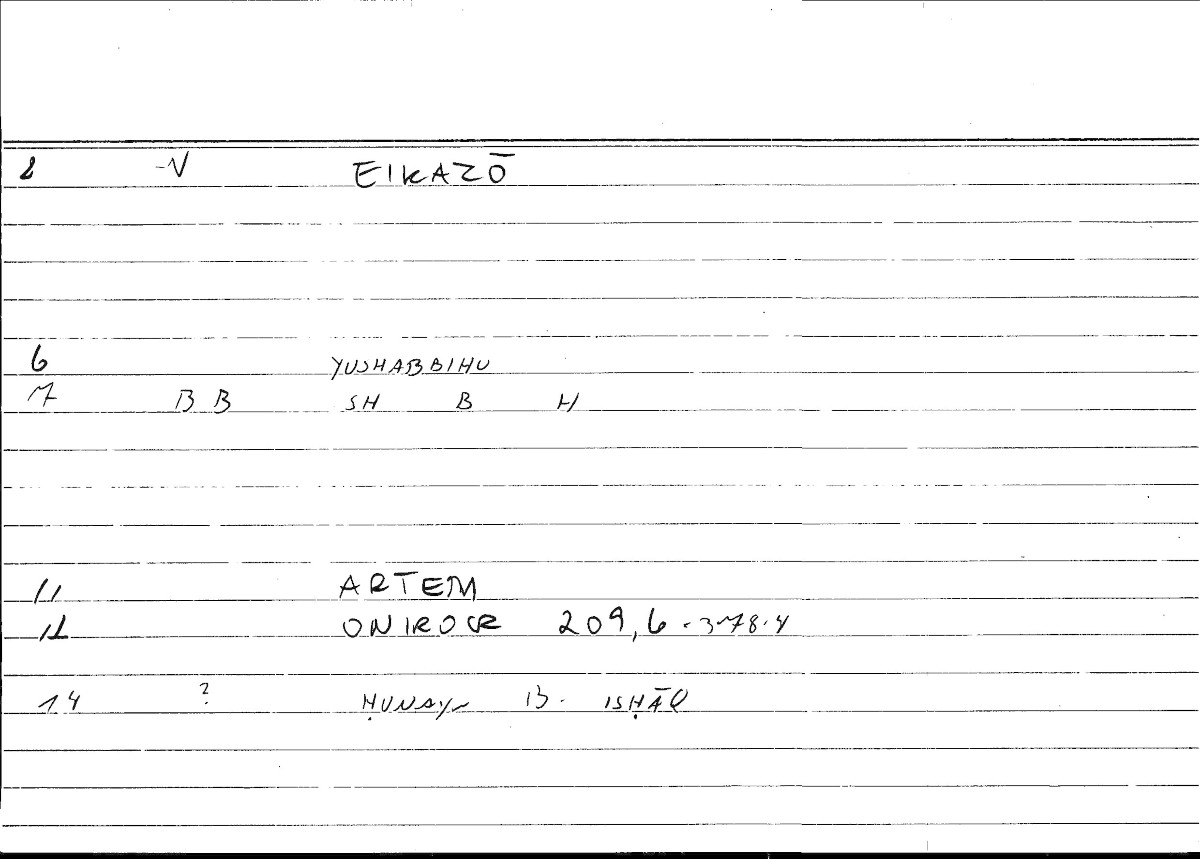 2 -V EIKAZŌ
6 YUSHABBIHU
7 BB SH B H
11 ARTEM
12 ONIROCR 209,6 - 378.4
14 ? ḤUNAYN B. ISḤĀQ